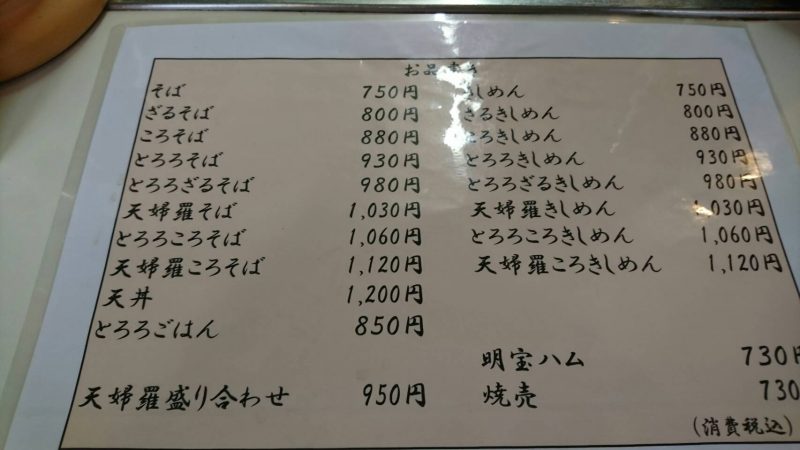 お品書き
そば 750円
ざるそば 800円
ころそば 880円
とろろそば 930円
とろろざるそば 980円
天婦羅そば 1,030円
とろろころそば 1,060円
天婦羅ころそば 1,120円
天丼 1,200円
とろろごはん 850円
天婦羅盛り合わせ 950円
きしめん 750円
ざるきしめん 800円
ころきしめん 880円
とろろきしめん 930円
とろろざるきしめん 980円
天婦羅きしめん 1,030円
とろろころきしめん 1,060円
天婦羅ころきしめん 1,120円
明宝ハム 730円
焼売 730
(消費税込)